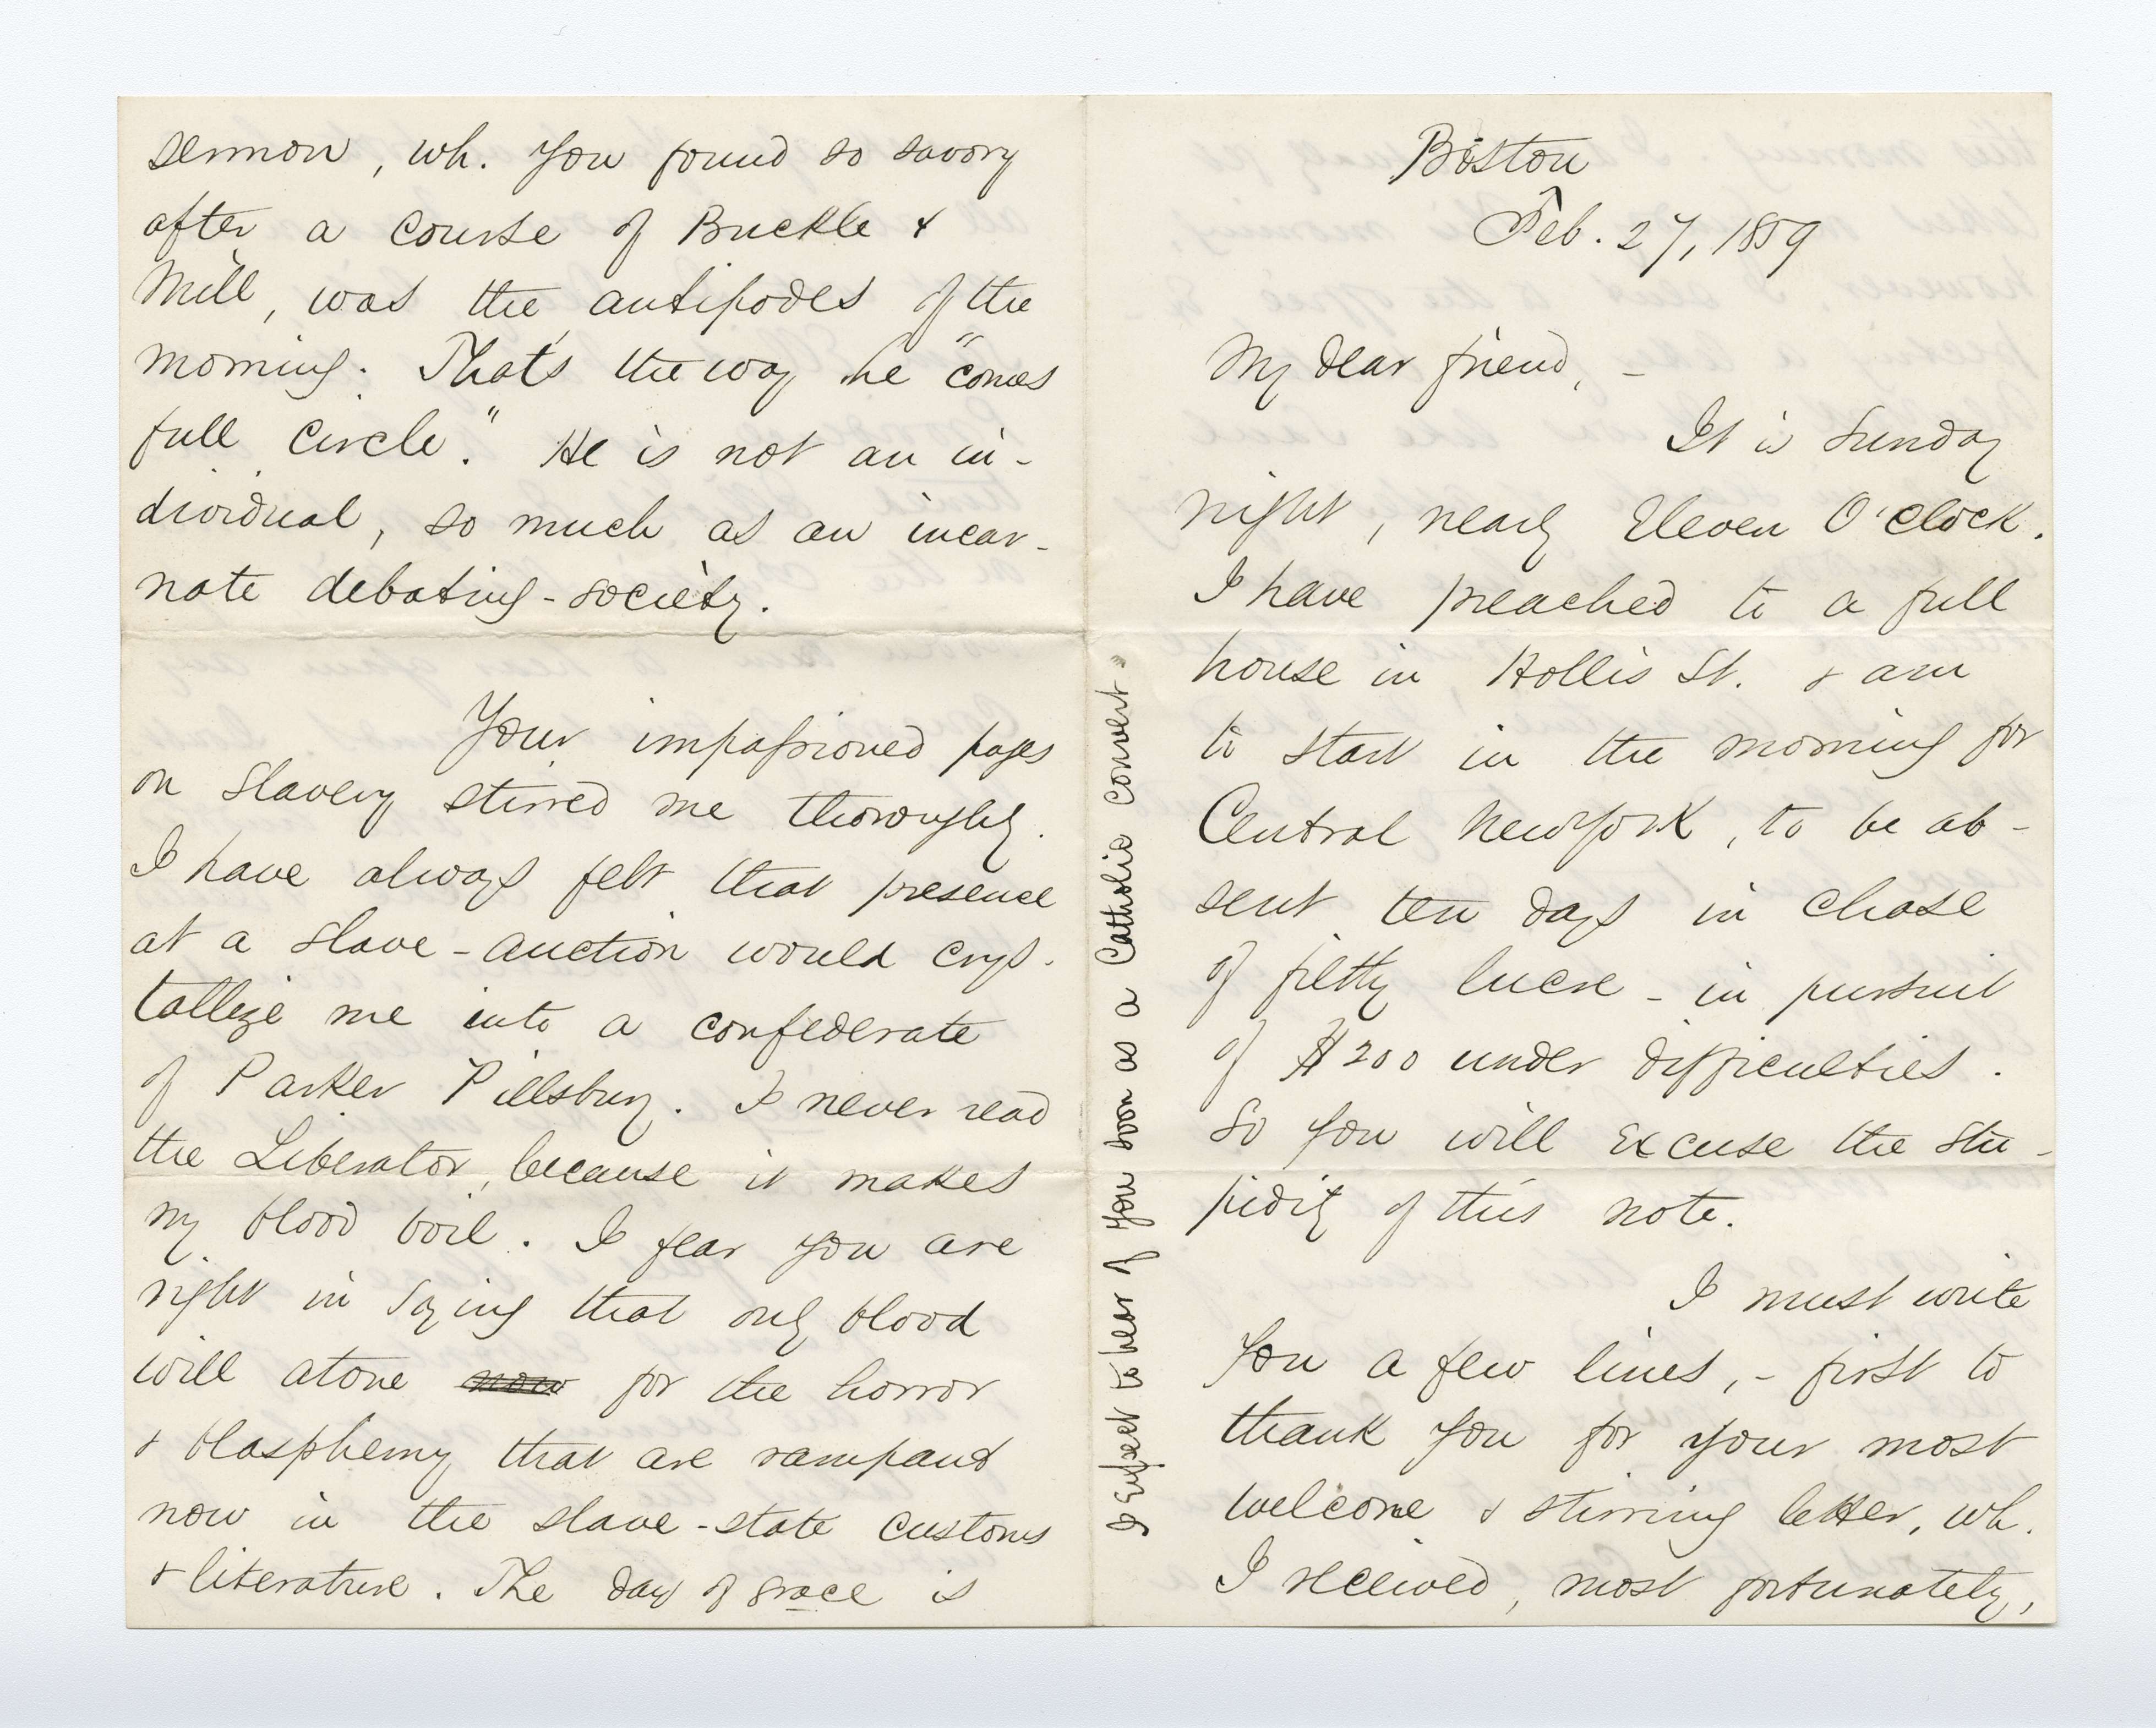 Boston
Feb. 27, 1859
My dear friend, -
It is Sunday
night, nearly Eleven O'clock.
I have preached to a full
house in Hollis St. & am
to start in the morning for
Central New York, to be ab-
sent ten days in chase
of filthy lucre - in pursuit
of $200 under difficulties.
So you will excuse the stu-
pidity of this note.
I must write
you a few lines, - first to
thank you for your most
welcome & stirring letter, wh.
I received, most fortunately,
I expect to hear of you soon as a Catholic convert.
sermon, wh. you found so savory
after a course of Buckle &
Mill, was the antipodes of the
morning. That's the way he "comes
full circle." He is not an in-
dividual, so much as an incar-
nate debating-society.
Your impassioned pages
on Slavery stirred me thoroughly.
I have always felt that presence
at a slave-auction would crys-
tallize me into a confederate
of Parker Pillsbury. I never read
the Liberator, because it makes
my blood boil. I fear you are
right in saying that only blood
will atone now for the horror
& blasphemy that are rampant
now in the slave-state customs
& literature. The day of grace is